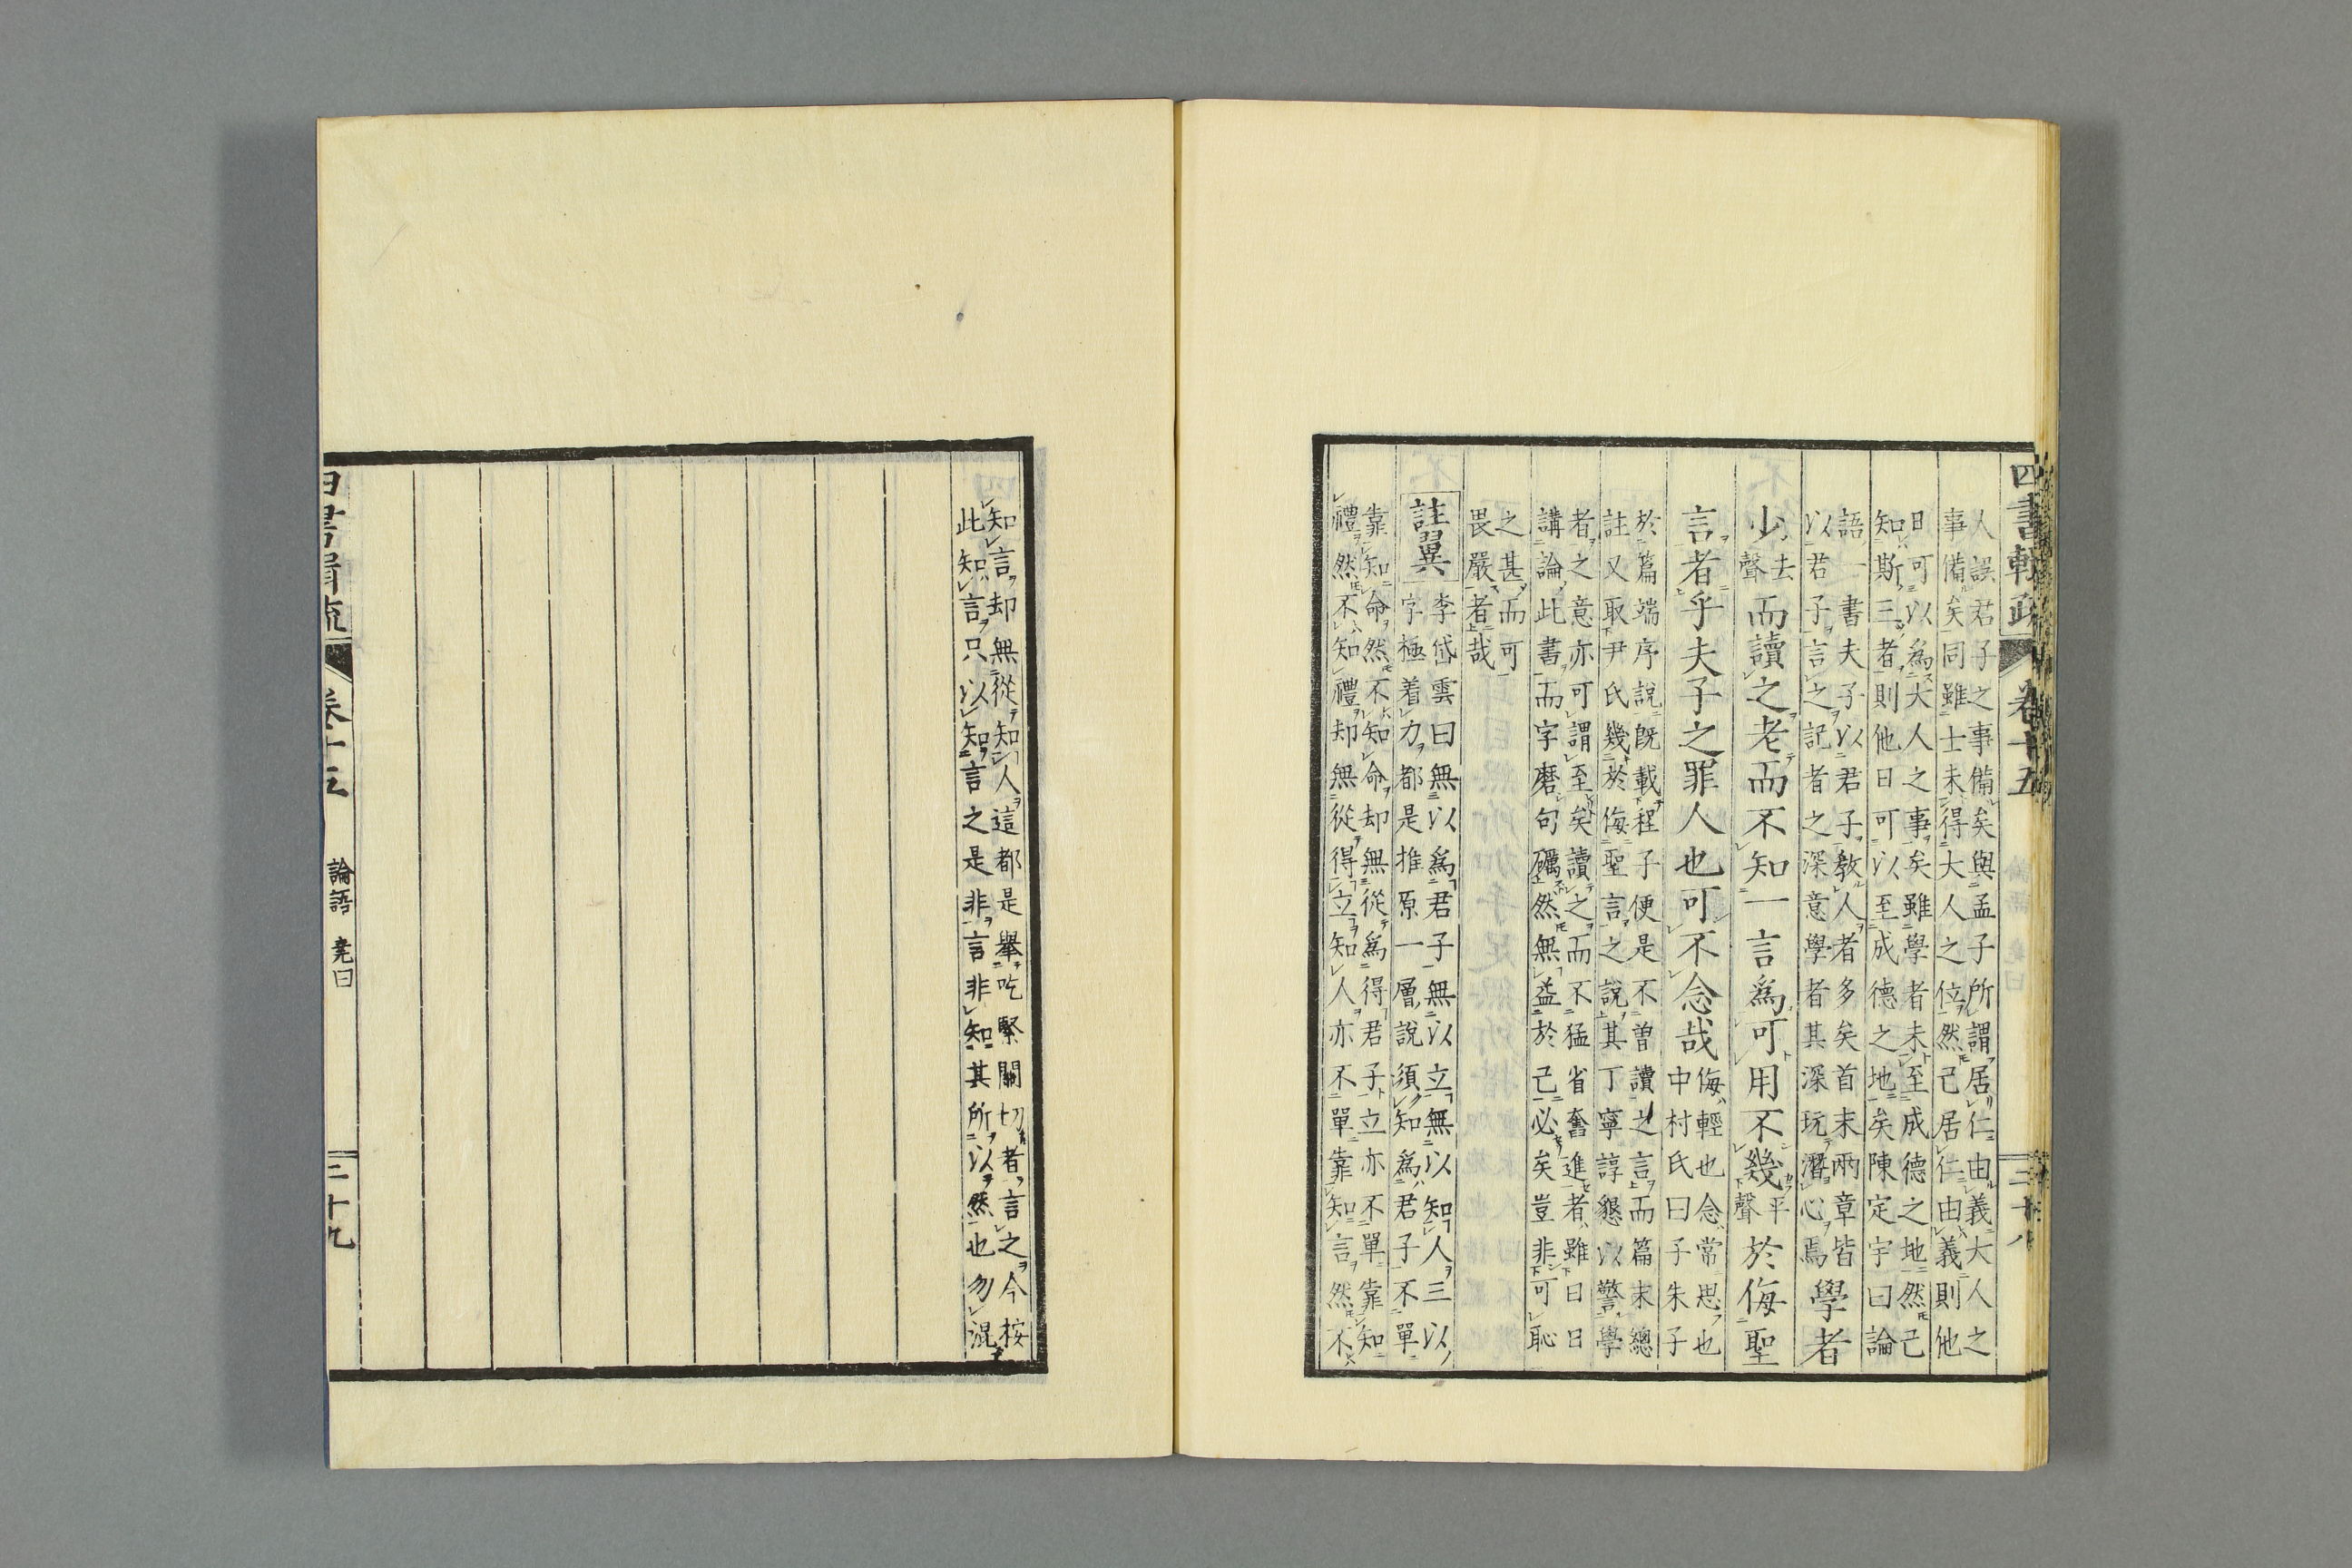 四書輯疏 卷十五 三十八
人誤君子之事備矣與孟子所謂居仁由義大人之
事備矣同雖士未得大人之位然已居仁由義則他
日可以為大人之事矣雖學者未至成德之地然己
知斯三者則他日可以至成德之地矣陳定宇曰論
語一書夫子以君子教人者多矣首末兩章皆
以君子言之記者之深意學者其深玩潛心焉學者
少去聲而讀之老而不知一言為可用不幾平聲於侮聖
言者乎夫子之罪人也可不念哉侮輕也念常思也
中村氏曰子朱子
於篇端序說既載程子便是不曾讀之言而篇末總
註又取尹氏幾於侮聖言之說其丁寧諄懇以警學
者之意亦可謂至矣讀之而不猛省奮進者雖日日
講論此書而字磨句礪然無益於己必矣豈非可恥
之甚而可
畏嚴者哉
註翼
李岱雲曰無以為君子無以立無以知人三以
字極着力都是推原一層說須知為君子不單
靠知命然不知命却無從為得君子立亦不單靠知
禮然不知禮却無從得立知人亦不單靠知言然不
知言却無從知人這都是舉吃緊關切者言之今按
此知言只以知言之是非言非知其所以然也勿混
論語 堯曰
二十九